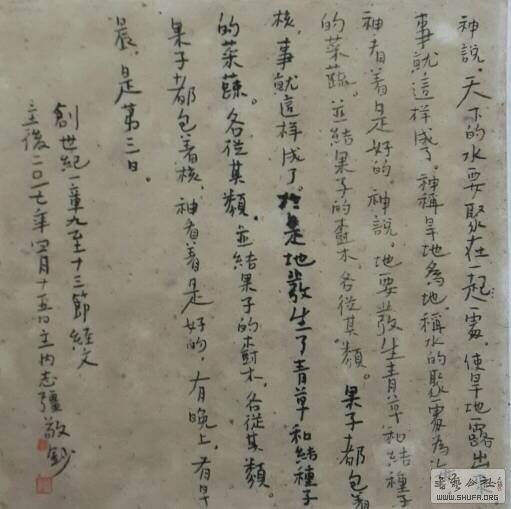 神說。天下的水要聚在一起一處。使旱地一露出
事就這样成了。神稱旱地為地。稱水的聚處為
神看着是好的。神說。地要發生青草和結種子
的菜蔬。並結果子的樹木。各從其類。果子都包着
核。事就這样成了。於是地發生了青草和結種子
的菜蔬。各從其類。並結果子的樹木。各從其類。
果子都包着核。神看着是好的。有晚上。有早
晨。是第三日。
創世紀一章九至十三節經文
主後二〇一七年四月十五日主內志彊敬鈔
WWW.SHUFA.COM